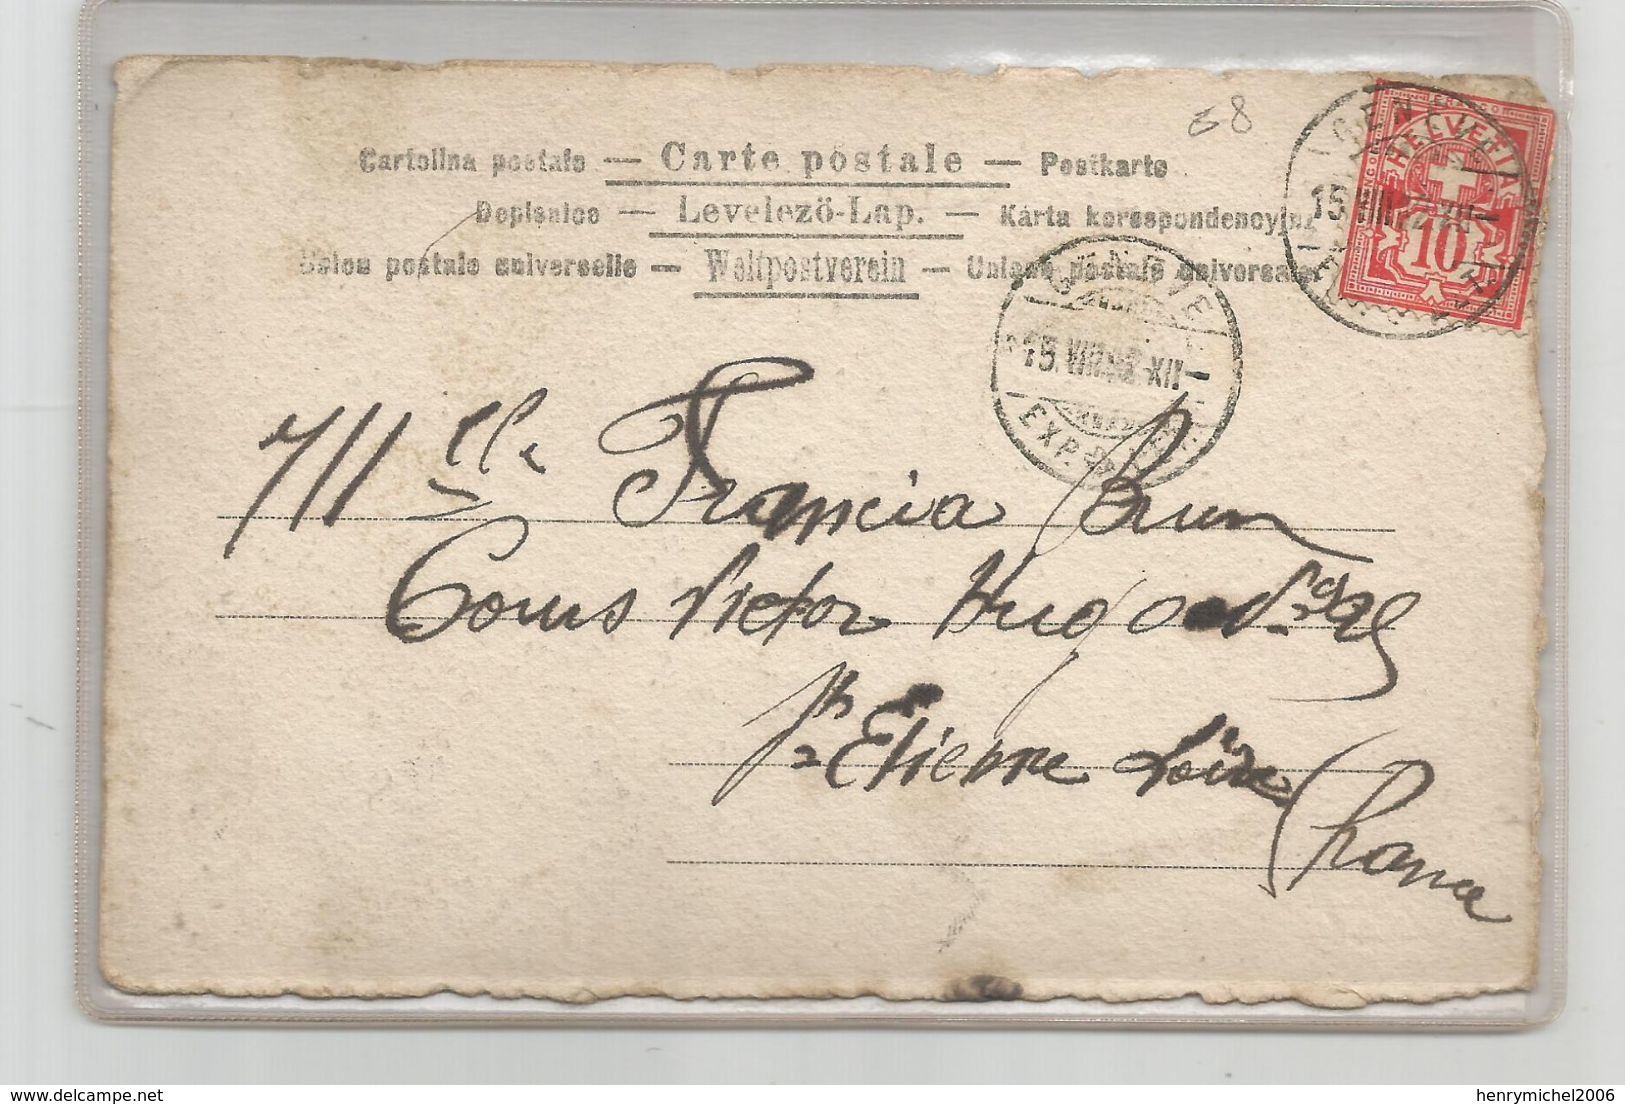 68
Cartolina postale — Carte postale — Postkarte
Dopisnice — Levelező-Lap. — Karta korespondencyjna
Union postale universelle — Weltpostverein — Unione postale universale
GENÈVE
15.VIII
HELVETIA
FRANCO
10
GENÈVE
15.VIII. XII
EXP. LETT.
Mlle Francia Brun
Cours Victor Hugo
St Etienne Loire
France
henrymichel2006